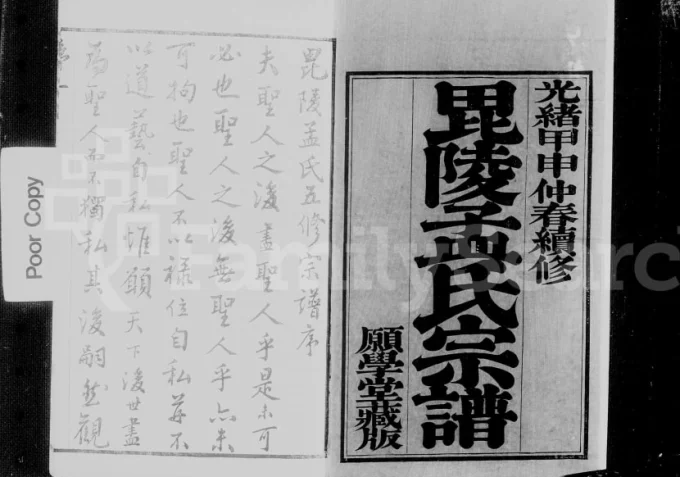 光緒甲申仲春續修
毘陵孟氏宗譜
願學堂藏版
毘陵孟氏五修宗譜序
夫聖人之後盡聖人乎是未可
必也聖人之後無聖人乎亦未
可拘也聖人不以祿位自私并不
以道藝自私惟願天下後世盡
為聖人而不獨私其後嗣然觀
Poor Copy
FamilySearc